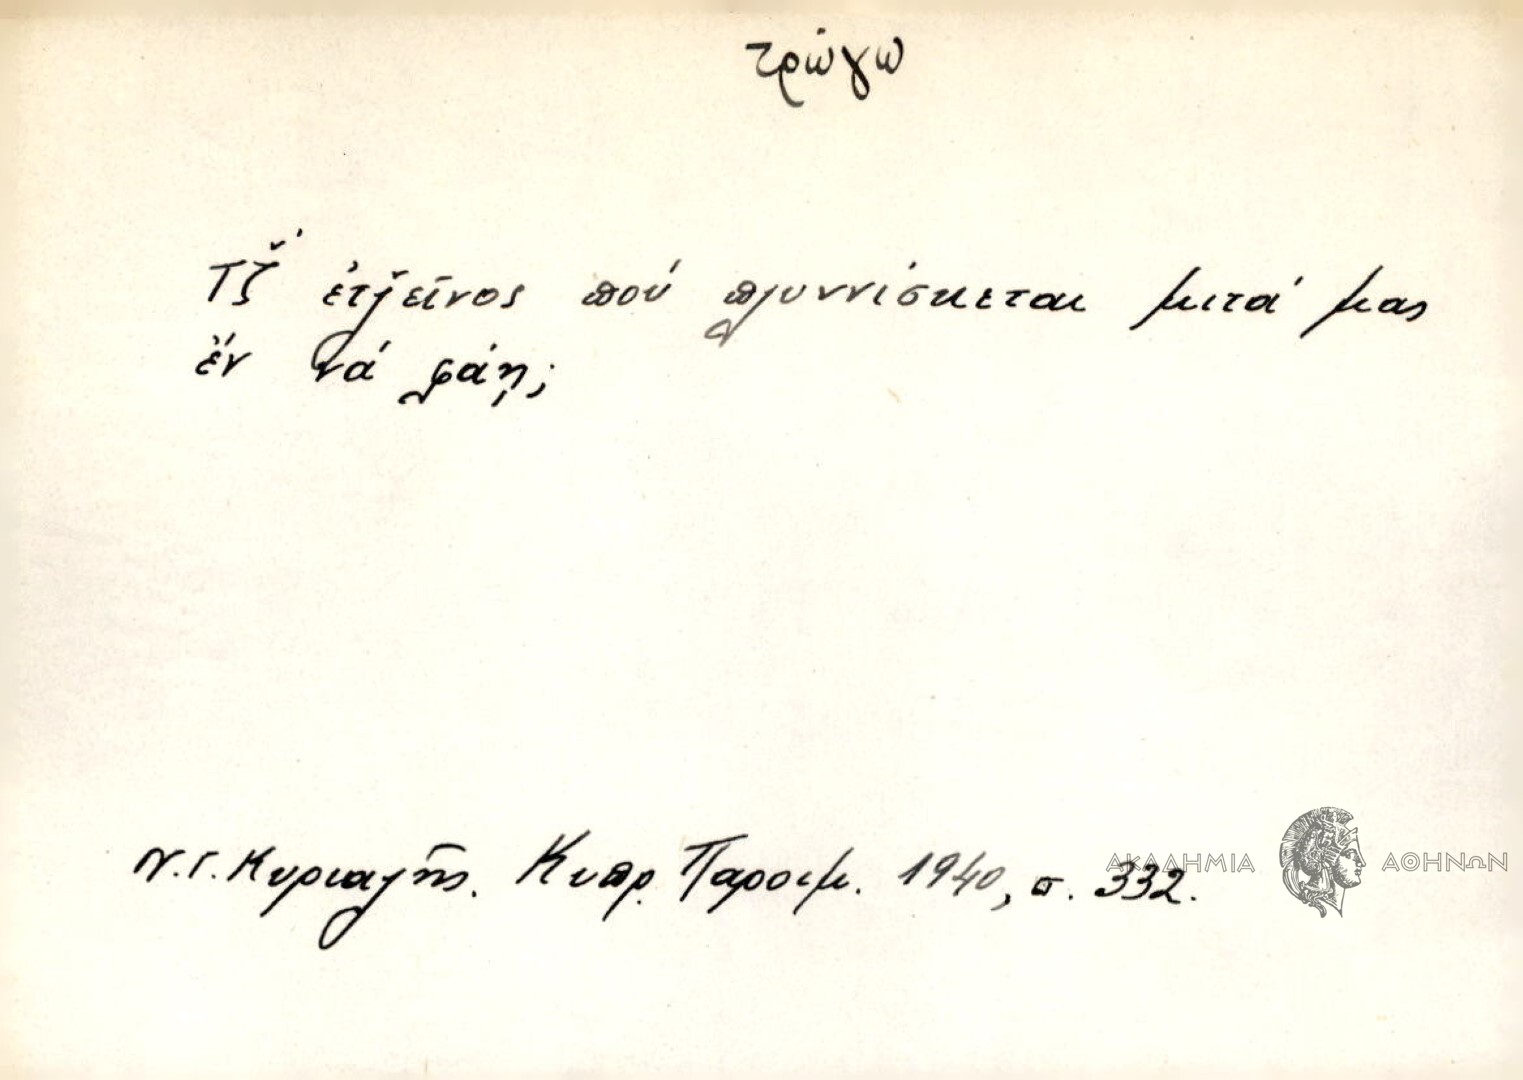 τρώγω
Τζ̌' ἐτζ̌εῖνος πού
μιτά μας
ἔν νά φάῃ;
Ν. Γ. Κυριαζῆς. Κυπρ. Παροιμ. 1940, σ. 332.
ΑΚΑΔΗΜΙΑ ΑΘΗΝΩΝ